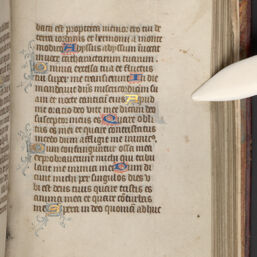 bata est propterea memor ero tui de
terra iordanis et hermonii a monte
modico Abyssus abyssum inuocat
in uoce cataractarum tuarum
Omnia excelsa tua et fluctus
tui super me transierunt In die
mandauit dns misericordiam su
am et nocte canticum eius Apud
me oratio deo vite mee dicam deo
susceptor meus es Quare obli
tus es mei et quare contristatus
incedo dum affligit me inimicus
Dum confringuntur ossa mea
exprobrauerunt michi qui tribu
lant me inimici mei Dum di
cunt michi per singulos dies v
bi est deus tuus quare tristis es
anima mea et quare cōturbas
me Spera in deo quoniam adhuc